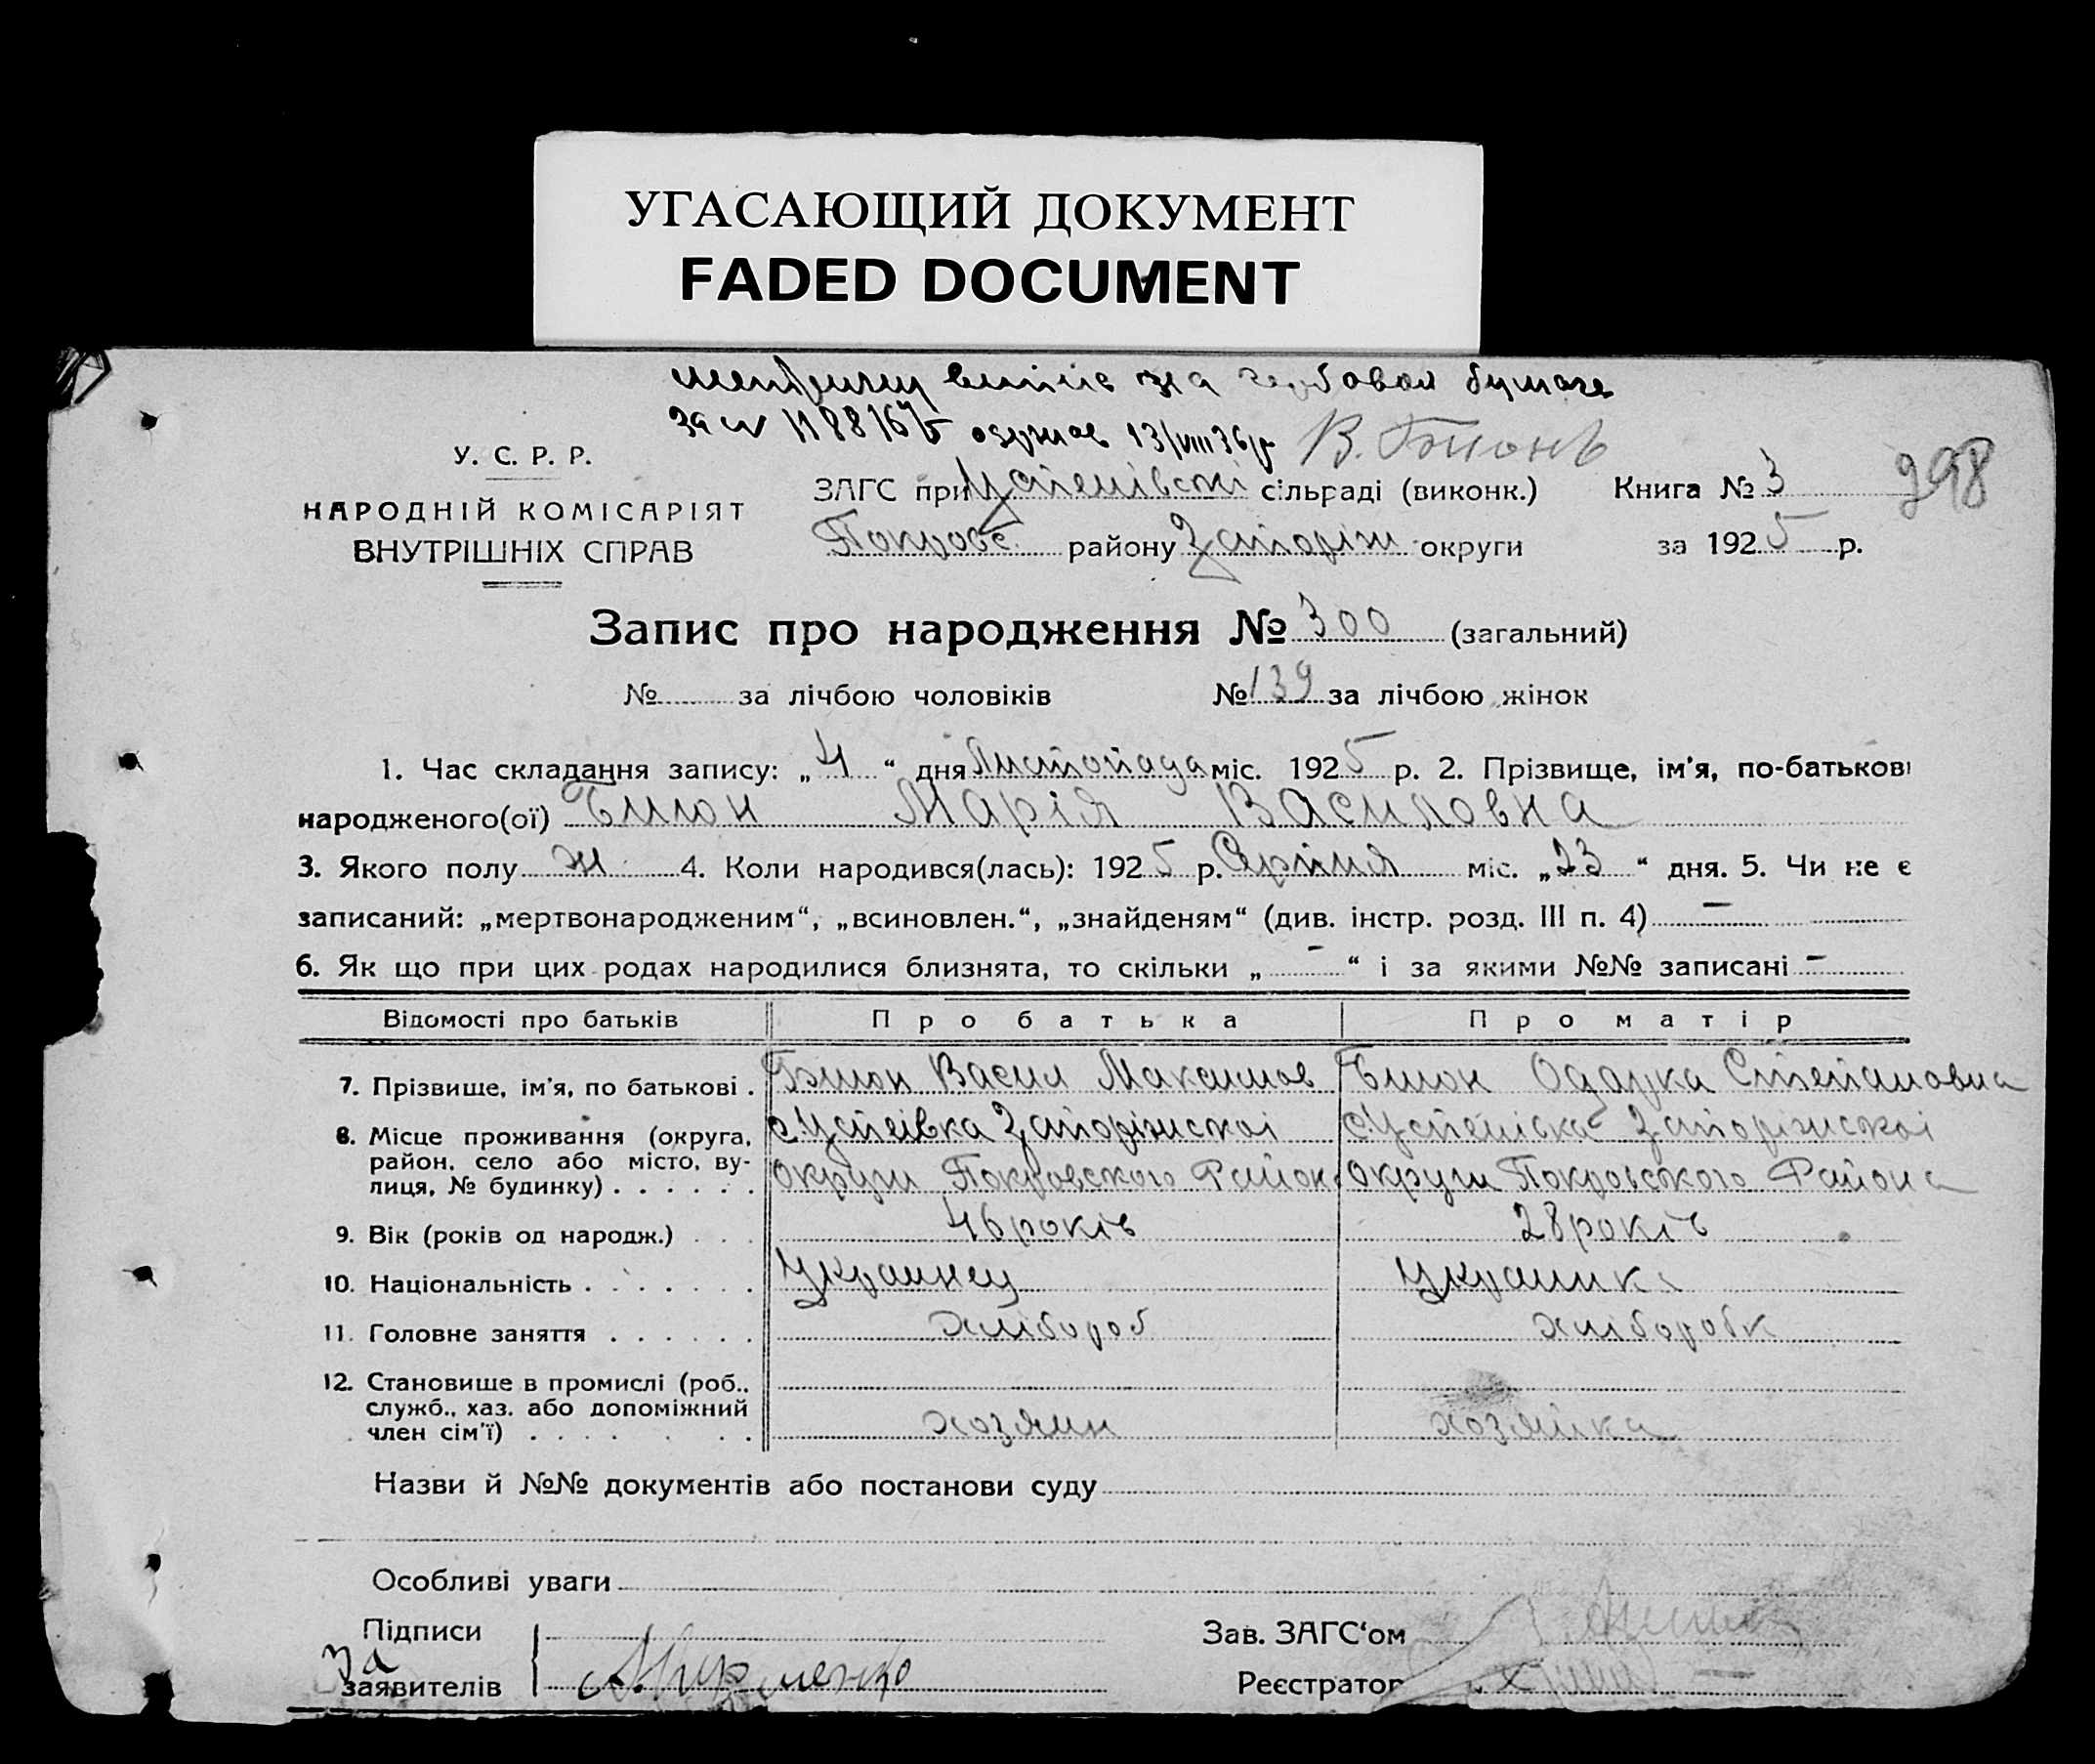 УГАСАЮЩИЙ ДОКУМЕНТ
FADED DOCUMENT
бумаге
13/VIII 36 р
298
У. С. Р. Р.
НАРОДНІЙ КОМІСАРІЯТ
ВНУТРІШНІХ СПРАВ
ЗАГС при Успенівскі сільраді (виконк.) Книга № 3
Покровс. району Запоріж округи за 1925 р.
Запис про народження № 300 (загальний)
№ за лічбою чоловіків № 139 за лічбою жінок
1. Час складання запису: „4“ дня Листопада міс. 1925 р. 2. Прізвище, ім'я, по-батькові
народженого(ої) Марія Василовна
3. Якого полу ж 4. Коли народився(лась): 1925 р. Серпня міс. „23“ дня. 5. Чи не є
записаний: „мертвонародженим“, „всиновлен.“, „знайденям“ (див. інстр. розд. III п. 4) –
6. Як що при цих родах народилися близнята, то скільки „–“ і за якими №№ записані –
Відомості про батьків Про батька Про матір
7. Прізвище, ім'я, по батькові . Васил Максимов Одарка Степановна
8. Місце проживання (округа, с. Успеівка Запоріжскоі Запоріжскоі
район, село або місто, ву-
лиця, № будинку) . . . . . . округи Покровского Района округи Покровського Района
9. Вік (років од народж.) . . . 46 років 28 років
10. Національність . . . . . . . Украинец Украинка
11. Головне заняття . . . . . . хлібороб хлібороб
12. Становище в промислі (роб.,
служб., хаз. або допоміжний
член сім'ї) . . . . . . . хозяин хозяйка
Назви й №№ документів або постанови суду
Особливі уваги
Підписи Зав. ЗАГС'ом
За
заявителів Реєстратор